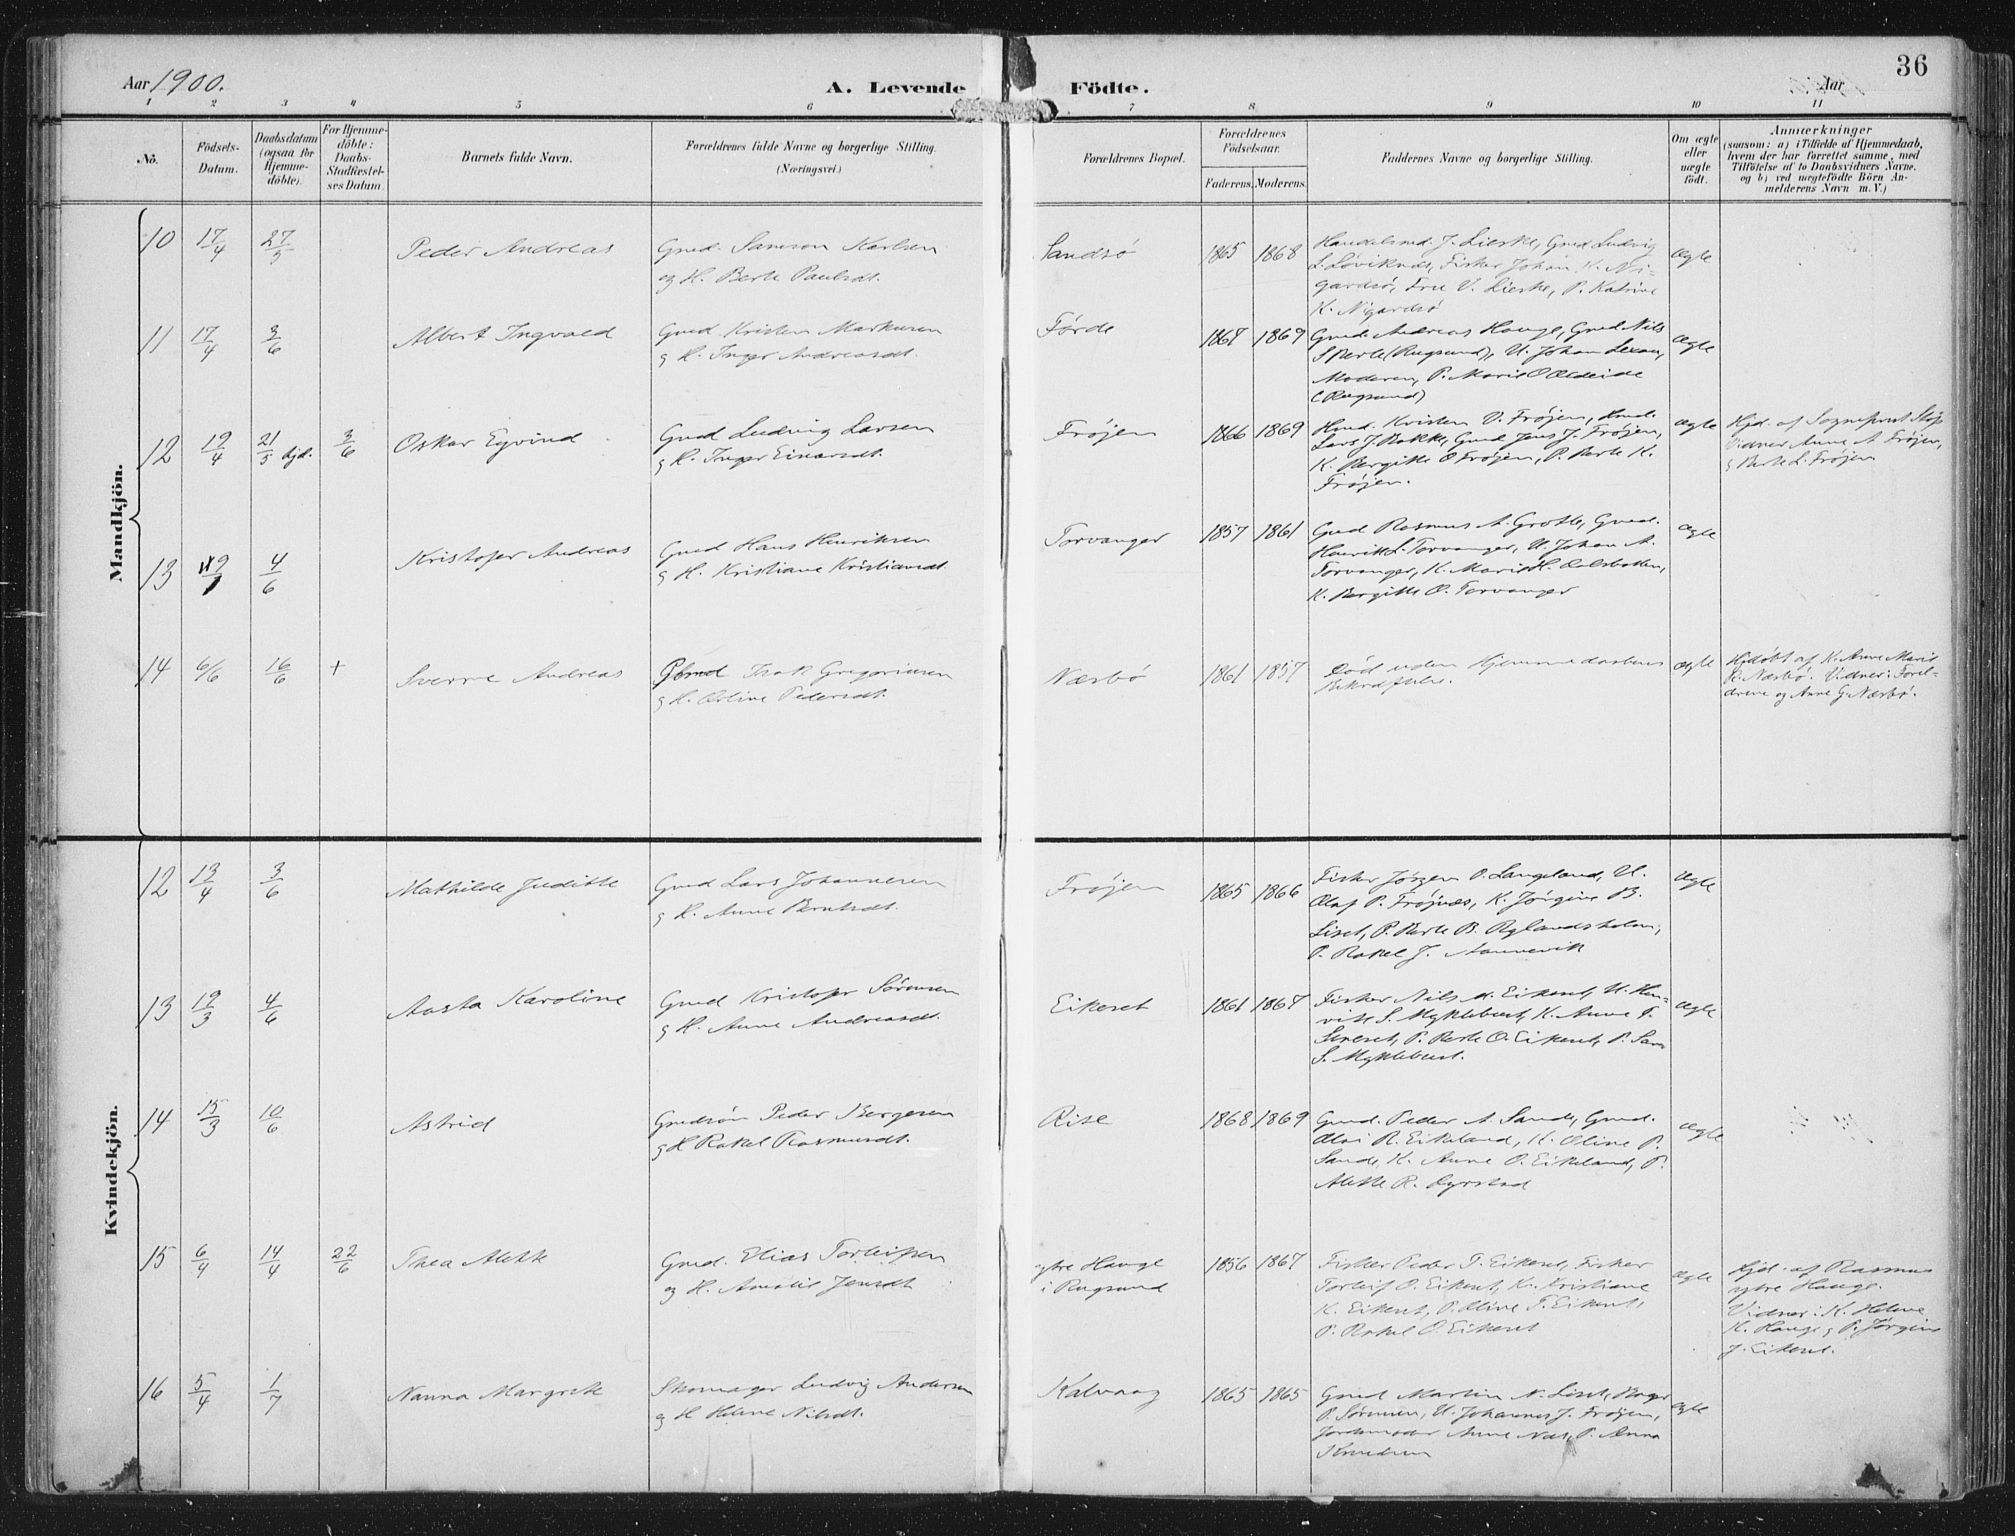 36
Aar 1900.
A. Levende Födte.
Aar
1 2 3 4 5 6 7 8 9 10 11
No.
Födsels-
Datum.
Daabsdatum
(ogsaa for
Hjemme-
döbte).
For Hjemme-
döbte:
Daabs-
Stadfæstel-
ses Datum.
Barnets fulde Navn.
Forældrenes fulde Navne og borgerlige Stilling.
(Næringsvei.)
Forældrenes Bopæl.
Forældrenes
Födselsaar.
Faderens. Moderens.
Faddernes Navne og borgerlige Stilling.
Om ægte
eller
uægte
födt.
Anmærkninger
(saasom: a) i Tilfælde af Hjemmedaab,
hvem der har forrettet samme, med
Tilföielse af to Daabsvidners Navne.
og b) ved uægtefödte Börn An-
melderens Navn m. V.)
Mandkjön.
10 17/4 27/5 Peder Andreas
Gmd. Samson Karlsen
og H. Berte Paulsdt.
Sandsø 1865 1868
Handelsmd. J. Lieske, Gmd Ludvig
Fisker Johan K. Ni-
gardsø, Fru V. Lieske, P. Katrine
K. Nigardsø
Ægte
11 17/4 3/6 Albert Ingvald
Gmd. Kristen Markusen
g H. Inger Andreasdt.
Førde 1867 1869
Gmd. Andreas Hauge, Gmd Nils
S Berle (Rugsund), U. Johan
Moderen, P. Marie O
(Rugsund)
Ægte
12 19/4 21/5 hjd. 3/6 Oskar Eyvind
Gmd Ludvig Larsen
g H. Inger Einarsdt.
Frøjen 1866 1869
Hmd. Kristen V. Frøjen, Hmd.
Lars J. Bakke, Gmd Jens J. Frøjen,
K. Bergitte O Frøjen, P. Berte K.
Frøjen.
Ægte
Hjd. af Sogneprest
Vidner Anne A Frøjen,
g Berte L. Frøjen
13 4/6 Kristofer Andreas
Gmd Hans Henriksen
g H. Kristiane Kristiansdt.
Torvanger 1857 1861
Gmd Rasmus A. Grotle, Gmd.
Henrik L. Torvanger, U. Johan A.
Torvanger, K. Marie H.
K. Bergitte O. Torvanger
Ægte
14 6/6 16/6 + Sverre Andreas
Isak Gregoriusen
g H. Oline Pedersdt.
Næsbø 1861 1857
Død uden Hjemmedaabens
Bekræftelse.
Ægte
Hjdøbt af K. Anne Marie
K. Næsbø. Vidner: Foreld-
drene og Anne G. Næsbø.
Kvindekjön.
12 13/4 3/6 Mathilde Juditte
Gmd Lars Johannesen
g H. Anne Berntsdt.
Frøjen 1865 1866
Fisker Jørgen O. Langeland, U.
Olaf P. Frøjnæs, K. Jørgine B.
Liset, P. Berte B. Rylandsholm,
P. Rakel J.
Ægte
13 19/3 4/6 Aasta Karoline
Gmd Kristofer Sørensen
g H. Anne Andreasdt.
Eikeset 1861 1867
Fisker Nils M. Eikeset, U. Hen-
rik S. Myklebust, K. Anne T.
P. Berte O. Eikeset, P.
S. Myklebust.
Ægte
14 15/3 10/6 Astrid
Gmdsøn Peder Børgesen
g H Rakel Rasmusdt.
Rise 1868 1869
Gmd. Peder A. Sande, Gmd.
R. Eikeland, K. Oline P.
Sande, K. Anne O. Eikeland, P.
Alette R. Dyrstad
Ægte
15 6/4 14/4 22/6 Thea Alette
Gmd. Elias Torleifsen
og H. Amalie Jensdt
ytre Hauge
i Rugsund
1856 1867
Fisker Peder T. Eikeset, Fisker
Torleif O. Eikeset, K. Kristiane
K. Eikeset, P. Oline T. Eikeset,
P. Rakel O. Eikeset
Ægte
Hjd. af Rasmus
ytre Hauge.
Vidner: K. Helene
K. Hauge g P. Jørgine
J. Eikeset.
16 5/4 1/7 Nanna Margrete
Skomager Ludvig Andersen
og H Helene Nilsdt.
Kalvaag 1865 1865
Gmd Martin N. Liset, Bager
P. Sørensen, U. Johannes J. Frøjen,
Jordmoder Anne Nes, P. Anna
Knudsen
Ægte